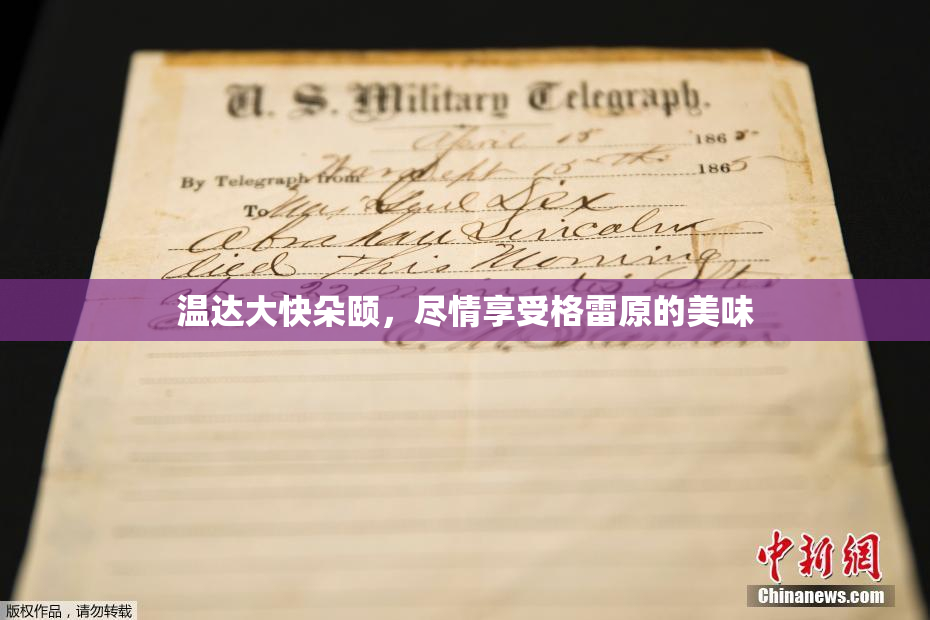 U. S. Military Telegraph.
April 15 1865
By Telegraph from War Dept 15th 1865
To Maj Genl Dix
Abraham Lincoln
died This Morning
at 22 minutes after
温达大快朵颐，尽情享受格雷原的美味
E. M. Stanton
中新网
Chinanews.com
版权作品，请勿转载